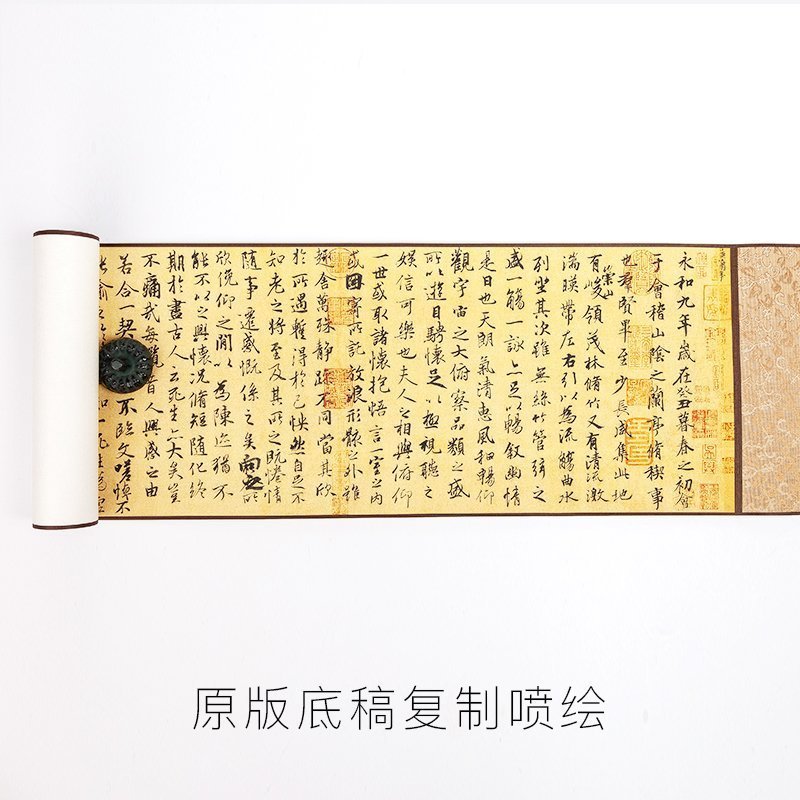 永和九年歲在癸丑暮春之初會
于會稽山陰之蘭亭脩稧事
也羣賢畢至少長咸集此地
有崇山峻領茂林脩竹又有清流激
湍暎帶左右引以為流觴曲水
列坐其次雖無絲竹管弦之
盛一觴一詠亦足以暢敘幽情
是日也天朗氣清惠風和暢仰
觀宇宙之大俯察品類之盛
所以遊目騁懷足以極視聽之
娛信可樂也夫人之相與俯仰
一世或取諸懷抱悟言一室之內
或因寄所託放浪形骸之外雖
趣舍萬殊靜躁不同當其欣
於所遇蹔得於己怏然自足不
知老之將至及其所之既惓情
隨事遷感慨係之矣向之所
欣俛仰之閒以為陳迹猶不
能不以之興懷況脩短隨化終
期於盡古人云死生亦大矣豈
不痛哉每攬昔人興感之由
若合一契不臨文嗟悼不
能喻之知一死生為
原版底稿复制喷绘